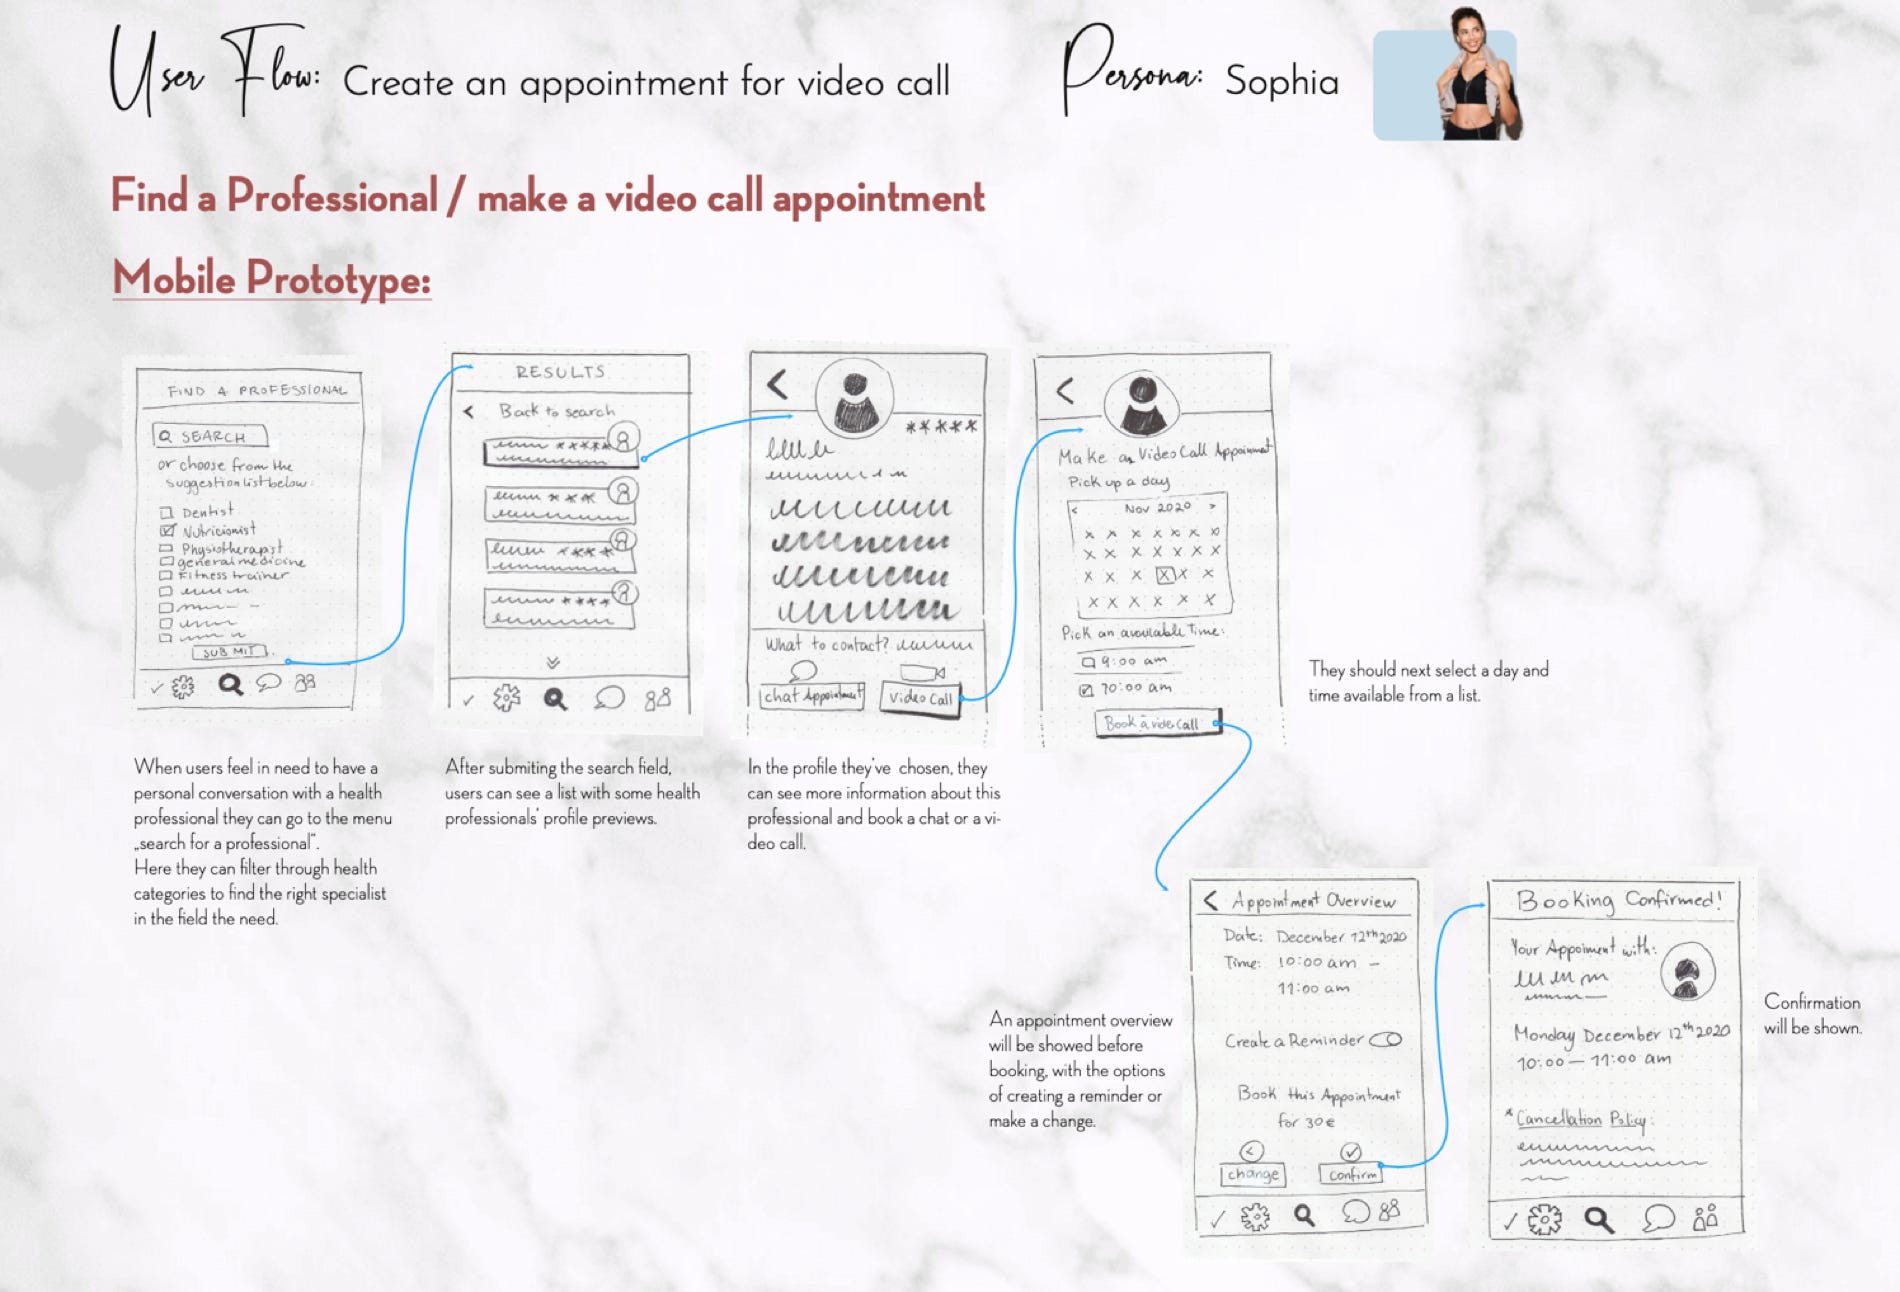 User Flow: Create an appointment for video call
Persona: Sophia
Find a Professional / make a video call appointment
Mobile Prototype:
FIND A PROFESSIONAL
SEARCH
or choose from the
suggestion list below:
Dentist
Nutricionist
Physiotherapist
general medicine
Fitness trainer
SUBMIT
When users feel in need to have a
personal conversation with a health
professional they can go to the menu
„search for a professional“.
Here they can filter through health
categories to find the right specialist
in the field the need.
RESULTS
< Back to search
After submiting the search field,
users can see a list with some health
professionals' profile previews.
What to contact?
chat Appointment
Video Call
In the profile they've chosen, they
can see more information about this
professional and book a chat or a vi-
deo call.
Make a Video Call Appoinment
Pick up a day
< Nov 2020 >
Pick an available Time:
9:00 am
10:00 am
Book a video call
They should next select a day and
time available from a list.
< Appointment Overview
Date: December 12th 2020
Time: 10:00 am –
11:00 am
Create a Reminder
Book this Appointment
for 30€
change
Confirm
An appointment overview
will be showed before
booking, with the options
of creating a reminder or
make a change.
Booking Confirmed!
Your Appoiment with:
Monday December 12th 2020
10:00 – 11:00 am
* Cancellation Policy:
Confirmation
will be shown.